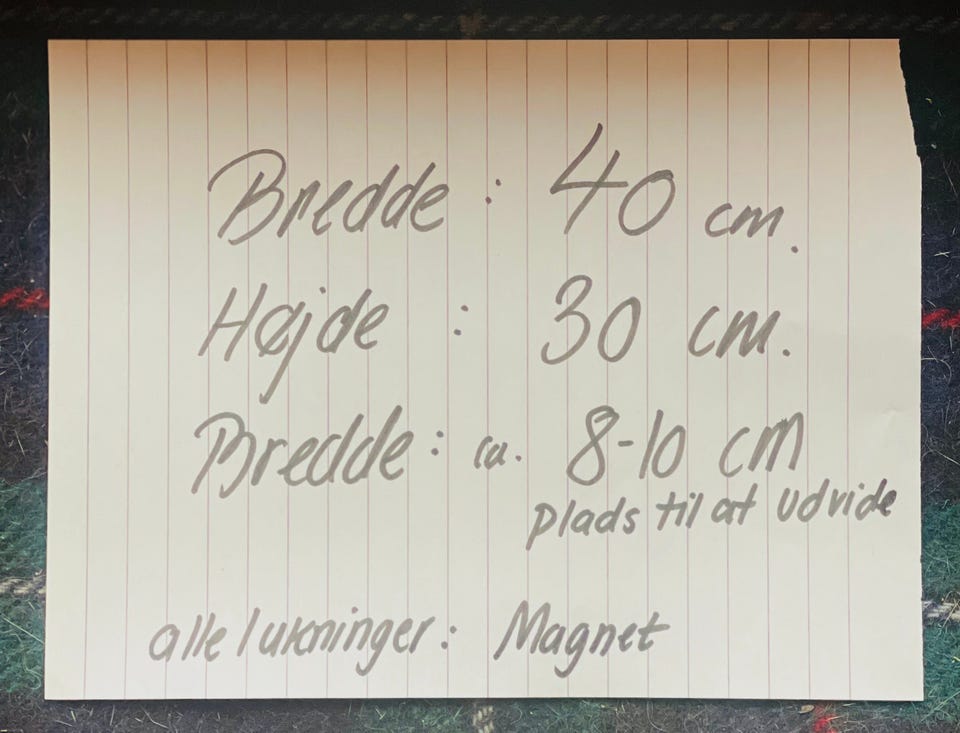 Bredde: 40 cm.
Højde: 30 cm.
Bredde: ca. 8-10 cm
plads til at udvide
alle lukninger: Magnet